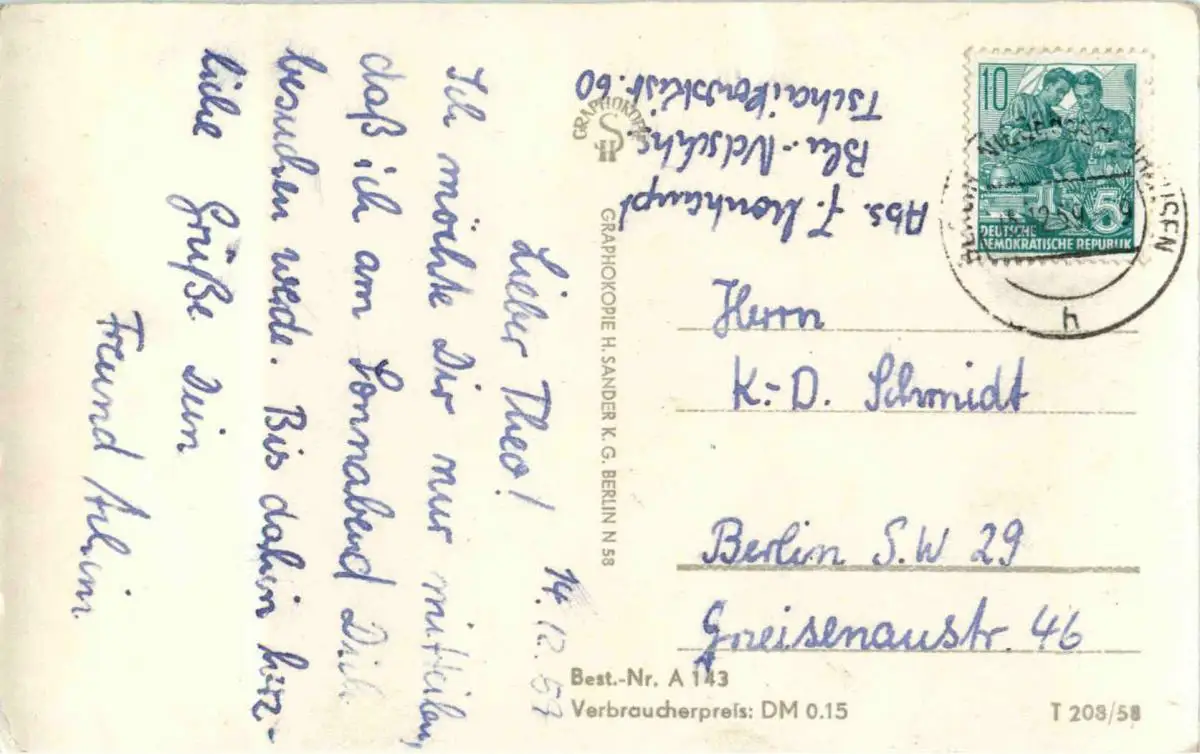 14.12.59
Lieber Theo!
Ich möchte Dir nur mitteilen,
daß ich am Sonnabend Dich
besuchen werde. Bis dahin herz-
liche Grüße Dein
Freund Achim
Abs. J.
Bln.-Ndschhs.
Tschaikowskistr. 60
GRAPHOKOPIE
GRAPHOKOPIE H. SANDER K. G. BERLIN N 58
10
5
DEUTSCHE
DEMOKRATISCHE REPUBLIK
BERLIN
4
Herrn
K.-D. Schmidt
Berlin S.W 29
Gneisenaustr. 46
Best.-Nr. A 143
Verbraucherpreis: DM 0.15
T 208/58